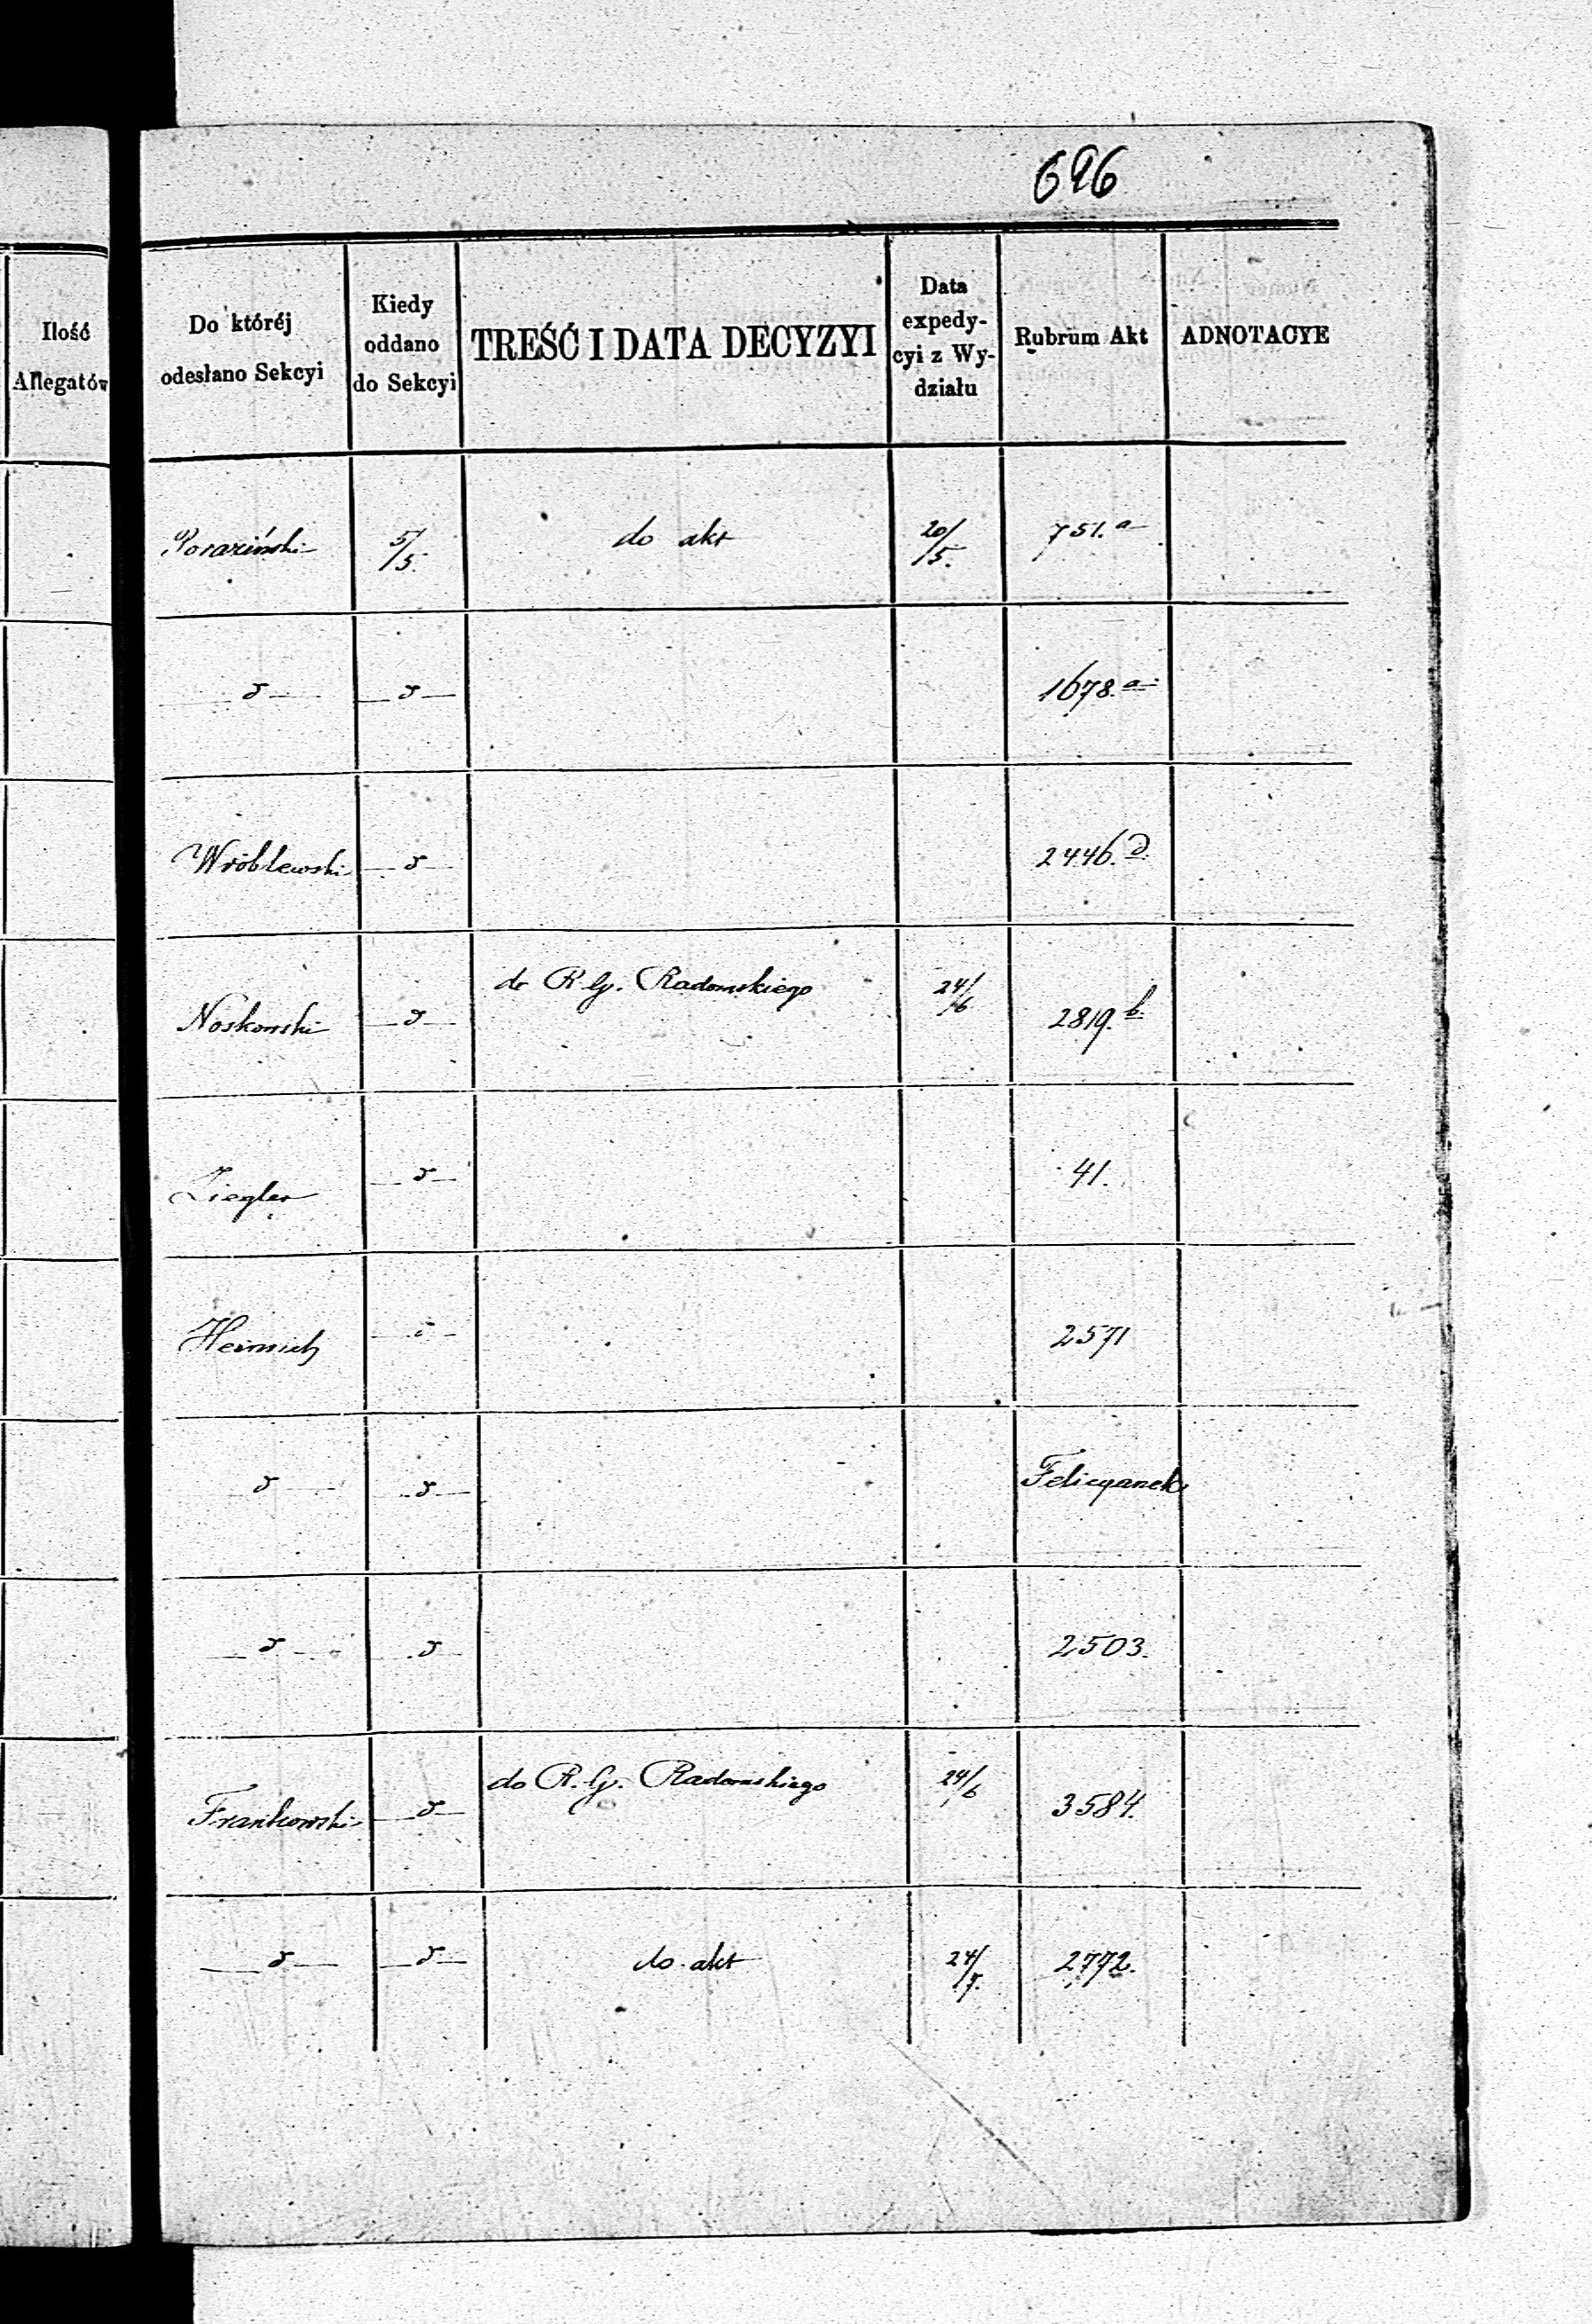 696
Ilość
Allegatów
Do któréj
odesłano Sekcyi
Kiedy
oddano
do Sekcyi
TREŚĆ I DATA DECYZYI
Data
expedy-
cyi z Wy-
działu
Rubrum Akt
ADNOTACYE
Poraziński 5/5. do akt 20/5. 751.a
— d — — d — 1678.a
Wróblewski — d — 2446.d
Noskowski — d — do R. G. Radomskiego 24/6 2819.b
Ziegler — d — 41.
— 2571
— d — — d — Felicyanek
— d — — d — 2503.
Frankowski — d — do R. G. Radomskiego 24/6 3584.
— d — — d — do akt 24/5. 2772.